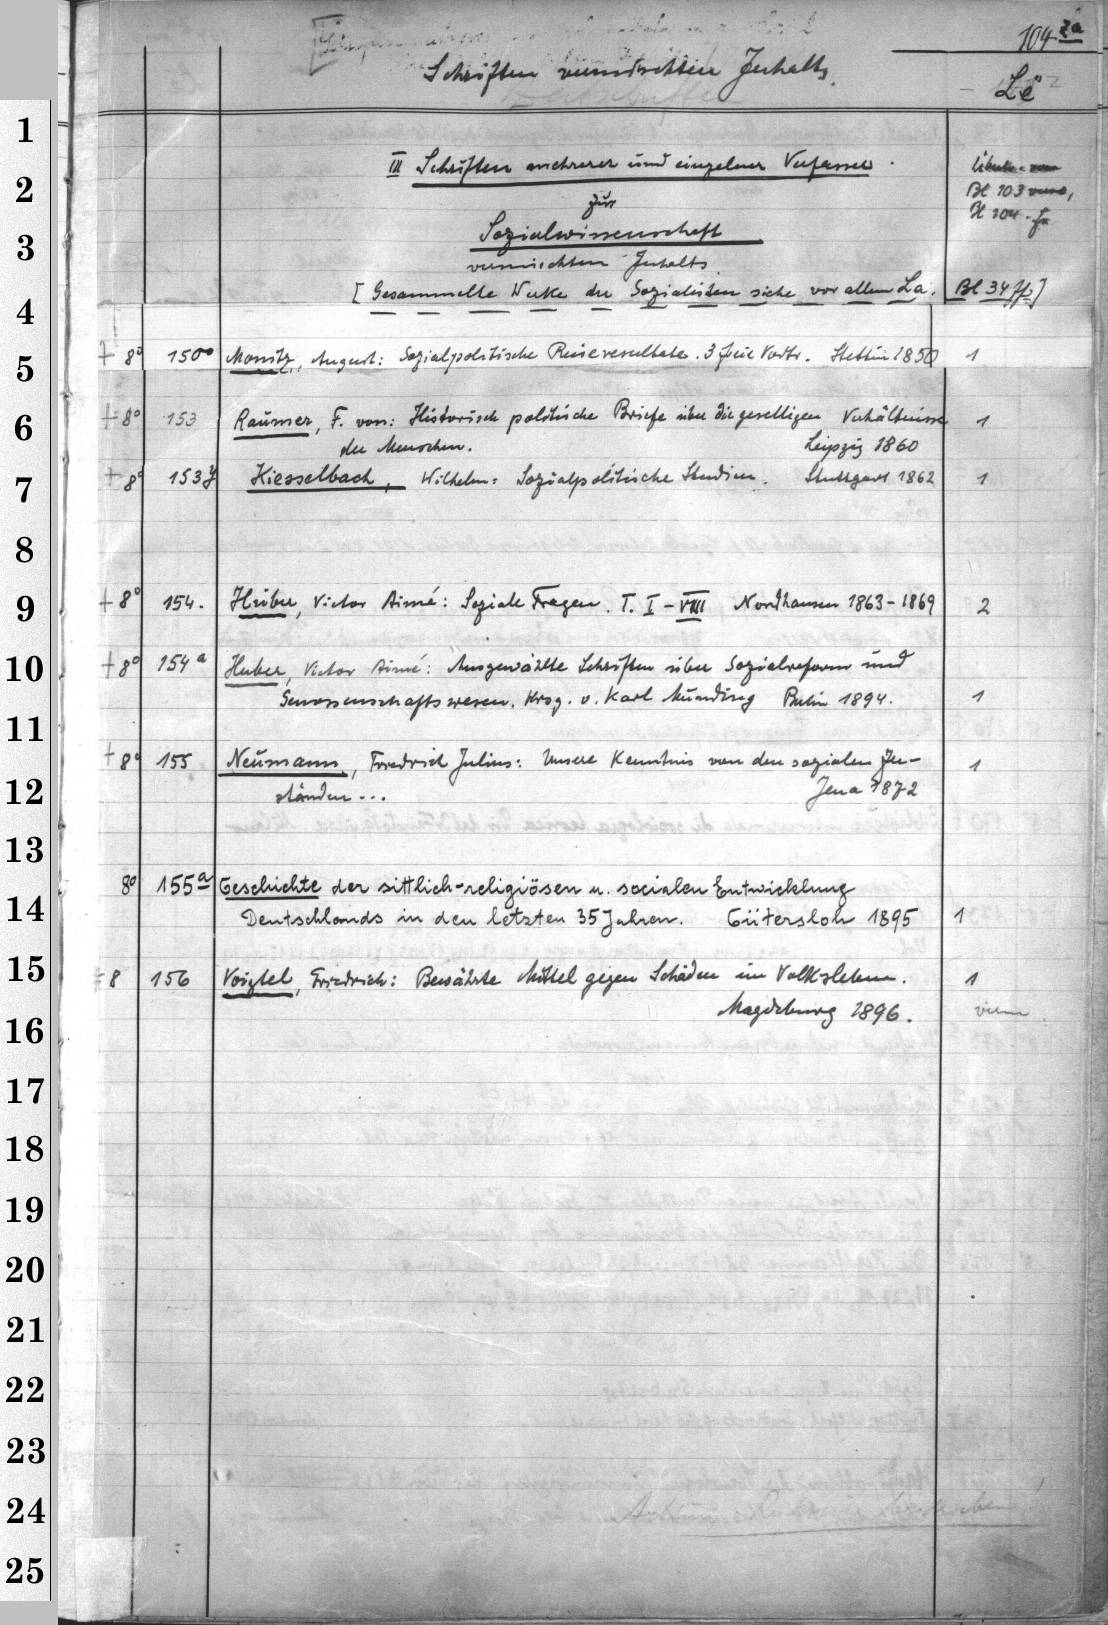 104 za
Schriften vermischten Inhalts.
Le
1
III Schriften mehrerer und einzelner Verfasser.
2
Bl 103
zur
Bl 104
3
Sozialwissenschaft
vermischten Inhalts
[Gesammelte Werke der Sozialisten siehe vor allem La. Bl 34 ff]
4
+ 8° 150 August: Sozialpolitische Reiseresultate. 3 freie Vortr. Stettin 1850 1
5
6
+ 8° 153 Raumer, F. von: Historisch politische Briefe über die geselligen Verhältnisse 1
der Menschen. Leipzig 1860
7
+ 8° 153 Kiesselbach, Wilhelm: Sozialpolitische Studien. Stuttgart 1862 1
8
9
+ 8° 154. Huber, Victor Aimé: Soziale Fragen. T. I-VIII Nordhausen 1863-1869 2
10
+ 8° 154 a Huber, Victor Aimé: Ausgewählte Schriften über Sozialreform und
Genossenschaftswesen. Hrsg. v. Karl Munding Berlin 1894. 1
11
+ 8° 155 Neumann, Friedrich Julius: Unsere Kenntnis von den sozialen Zu-
1
12
ständen... Jena 1872
13
8° 155 a Geschichte der sittlich-religiösen u. socialen Entwicklung
14
Deutschlands in den letzten 35 Jahren. Gütersloh 1895 1
15
8 156 Voigtel, Friedrich: Bewährte Mittel gegen Schäden im Volksleben. 1
16
Magdeburg 1896.
17
18
19
20
21
22
23
24
25